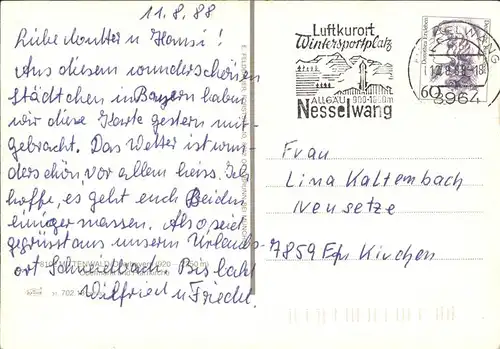 11.8.88
Liebe Mutter u Hansi!
Aus diesem wunderschönen
Städtchen in Bayern haben
wir diese Karte gestern mit-
gebracht. Das Wetter ist wun-
derschön vor allem heiss. Ich
hoffe, es geht euch Beiden
einigermassen. Also, seit
gegrüsst aus unserem Urlaubs-
ort Scheidbach. Bis bald
Wilfried u Friedel.
Luftkurort
Wintersportplatz
ALLGÄU 900-1600m
Nesselwang
NESSELWANG
60
8964
Frau
Lina Kaltenbach
Neusetze
7859 Efr. Kirchen